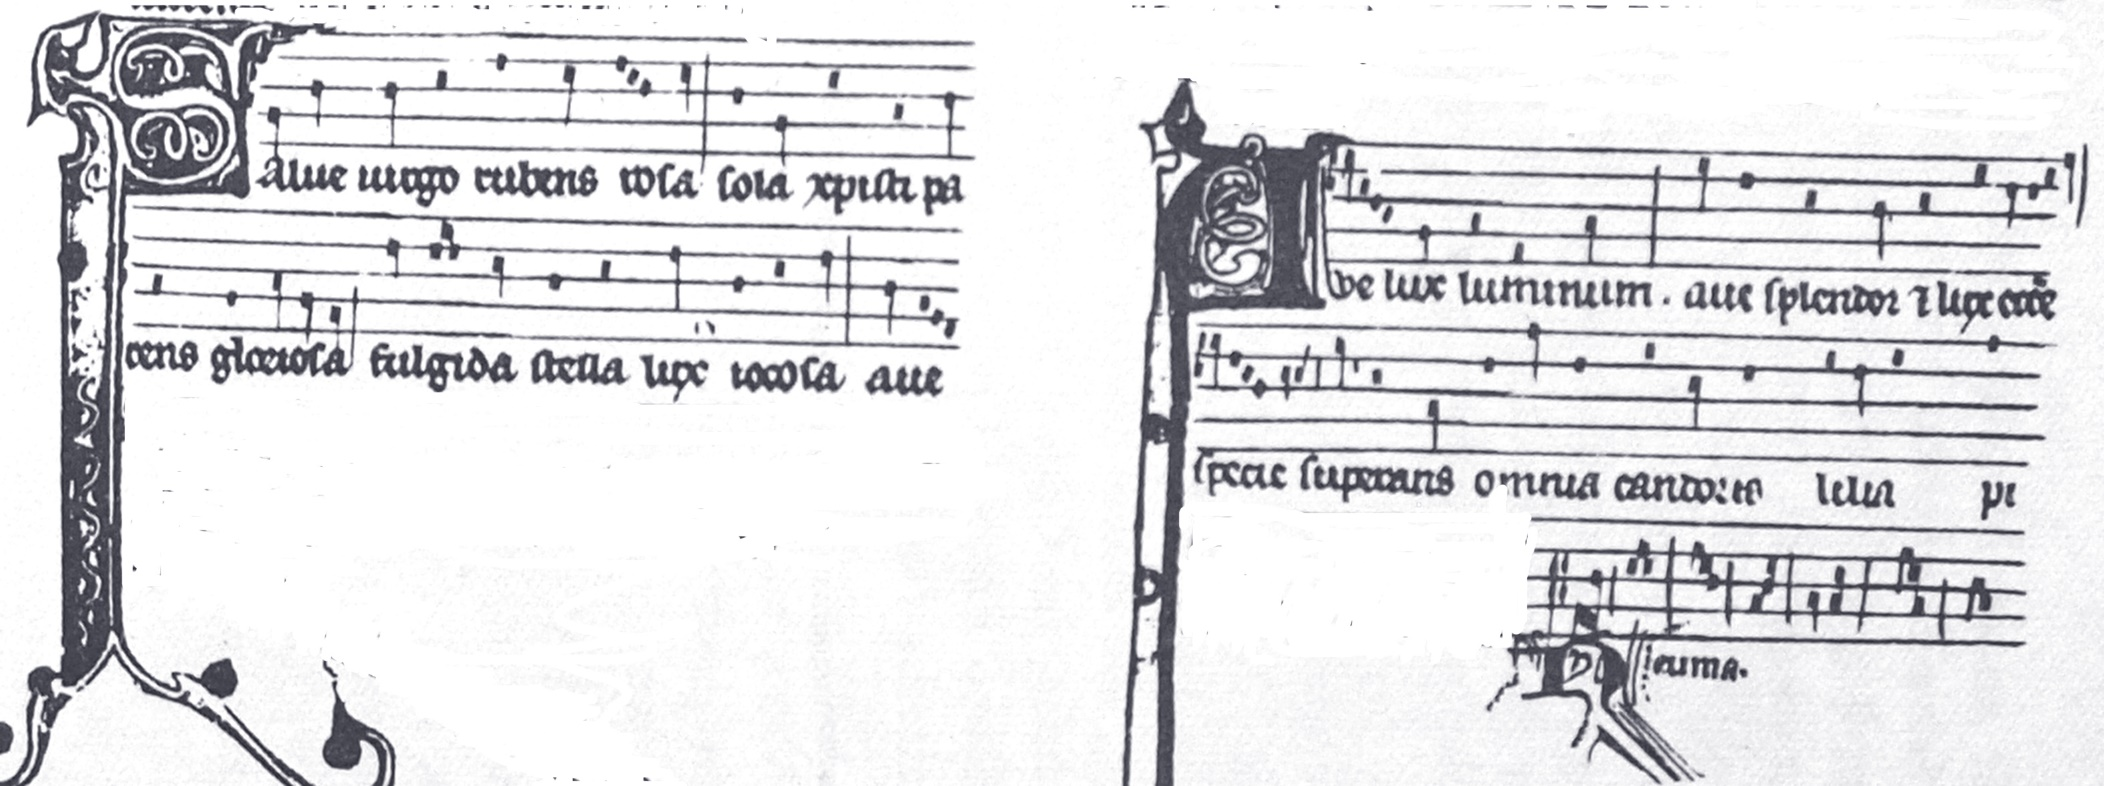 Salue uirgo rubens rosa sola xpisti pa
rens gloriosa fulgida stella lux iocosa aue
Ave lux luminum . aue splendor ⁊ lux eccłe
specie superans omnia candoris lilia pi
Neuma.